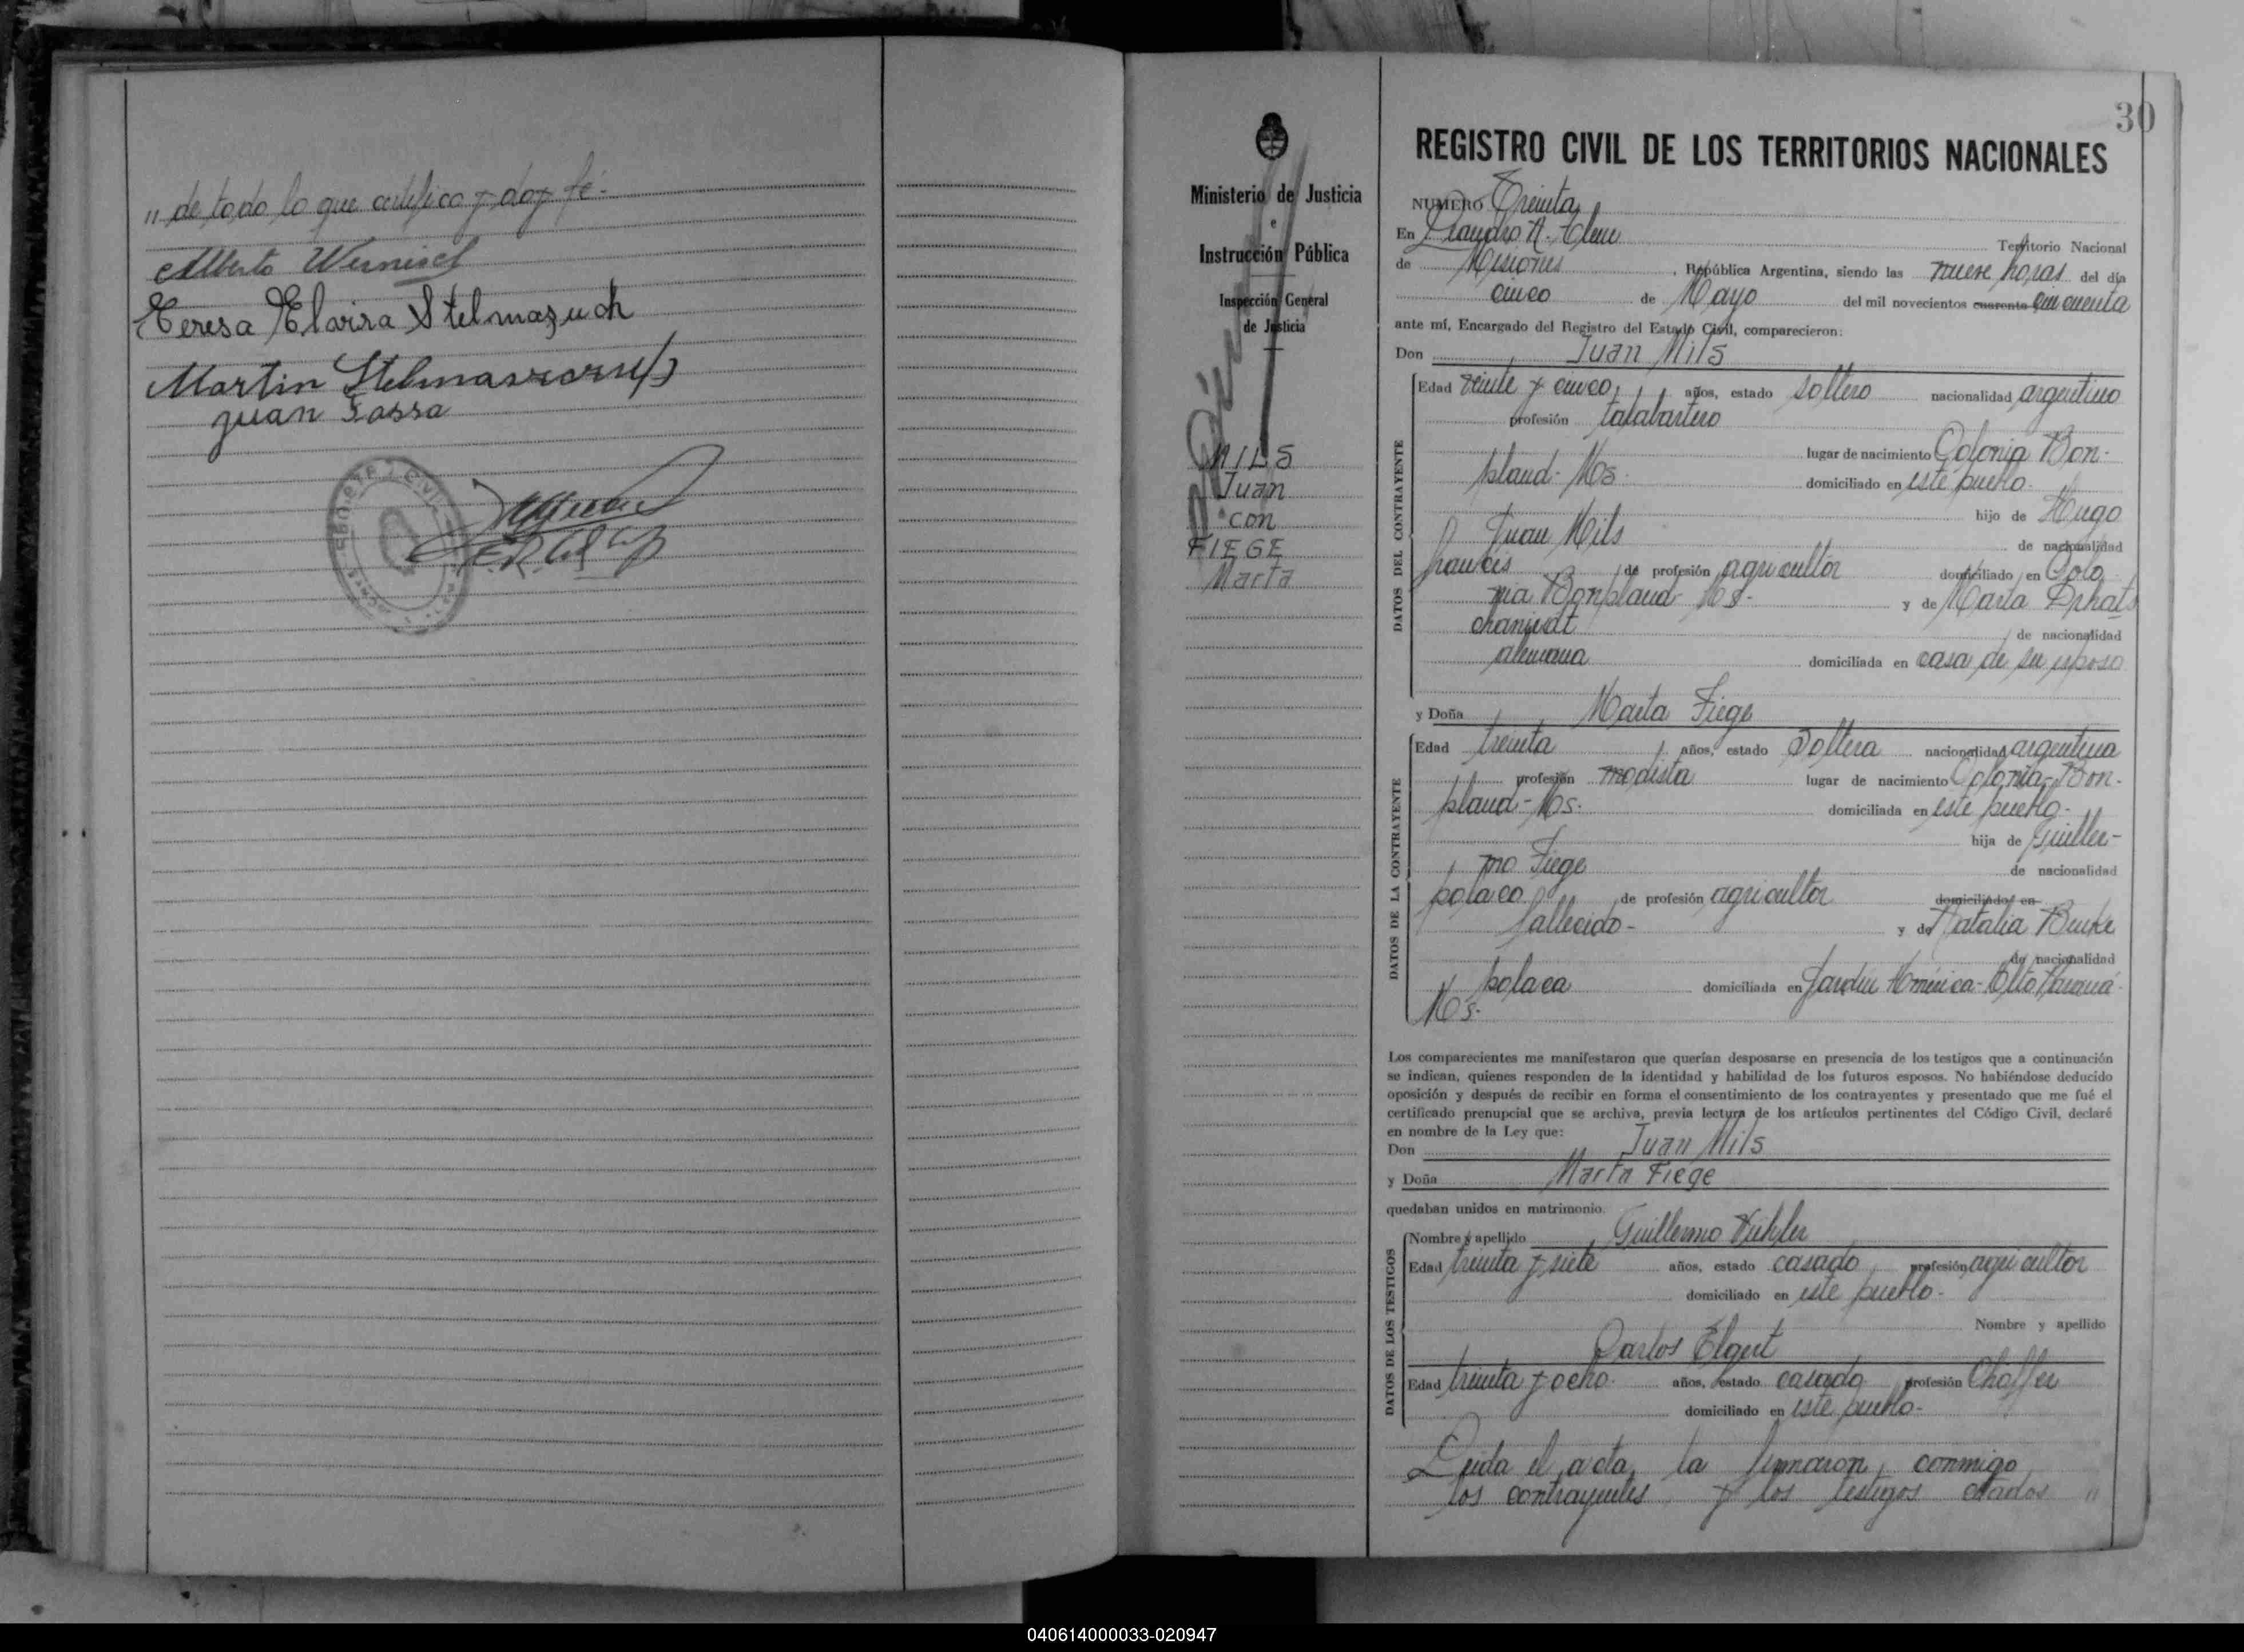 " de todo lo que certifico y doy fé.-
Alberto Wernisch
Teresa Elvira Stelmazuch
Martin Stelmaszczuk
Juan Fassa
REGISTRO CIVIL
Ministerio de Justicia
e
Instrucción Pública
Inspección General
de Justicia
MILS
Juan
con
FIEGE
Marta
30
REGISTRO CIVIL DE LOS TERRITORIOS NACIONALES
NUMERO Treinta
En Leandro N. Alem Territorio Nacional
de Misiones, República Argentina, siendo las nueve horas del día
cinco de Mayo del mil novecientos cuarenta cincuenta
ante mí, Encargado del Registro del Estado Civil, comparecieron:
Don Juan Mils
DATOS DEL CONTRAYENTE
Edad veinte y cinco años, estado soltero nacionalidad argentino
profesión talabartero
lugar de nacimiento Colonia Bon-
pland- Ms. domiciliado en este pueblo.
hijo de Hugo
Juan Mils de nacionalidad
francés de profesión agricultor domiciliado en Colo
nia Bonpland- Ms- y de Marta
de nacionalidad
alemana domiciliada en casa de su esposo
y Doña Marta Fiege
DATOS DE LA CONTRAYENTE
Edad treinta años, estado Soltera nacionalidad argentina
profesión modista lugar de nacimiento Colonia-Bon-
pland-Ms. domiciliada en este pueblo-
hija de Guiller-
mo Fiege de nacionalidad
polaco de profesión agricultor domiciliado en
fallecido- y de Natalia
de nacionalidad
polaca domiciliada en Jardin América-Alto Paraná-
Ms-
Los comparecientes me manifestaron que querían desposarse en presencia de los testigos que a continuación
se indican, quienes responden de la identidad y habilidad de los futuros esposos. No habiéndose deducido
oposición y después de recibir en forma el consentimiento de los contrayentes y presentado que me fué el
certificado prenupcial que se archiva, previa lectura de los artículos pertinentes del Código Civil, declaré
en nombre de la Ley que:
Don Juan Mils
y Doña Marta Fiege
quedaban unidos en matrimonio.
DATOS DE LOS TESTIGOS
Nombre y apellido Guillermo
Edad treinta y siete años, estado casado profesión agricultor
domiciliado en este pueblo-
Nombre y apellido
Carlos Elgert
Edad treinta y ocho- años, estado casado profesión Choffer
domiciliado en este pueblo-
Leida el acta, la firmaron conmigo
los contrayentes y los testigos citados "
040614000033-020947